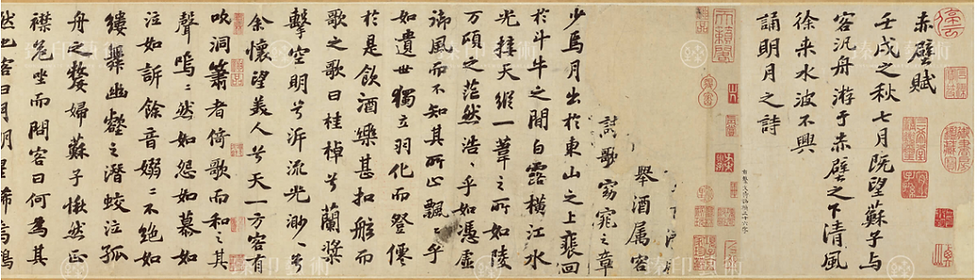 赤壁賦
壬戌之秋七月既望蘇子與
客汎舟游于赤壁之下清風
徐来水波不興
誦明月之詩
舉酒属客
歌窈窕之章
少焉月出於東山之上裴回
於斗牛之間白露橫江水
光接天縱一葦之所如陵
万頃之茫然浩〻乎如憑虛
御風而不知其所止飄〻乎
如遺世獨立羽化而登僊
於是飲酒樂甚扣舷而
歌之歌曰桂棹兮蘭槳
擊空明兮泝流光渺〻兮
余懷望美人兮天一方客有
吹洞簫者倚歌而和之其
聲嗚〻然如怨如慕如
泣如訴餘音嫋〻不絕如
縷舞幽壑之潛蛟泣孤
舟之嫠婦蘇子愀然正
襟危坐而問客曰何爲其
然也客曰月明星稀烏鵲